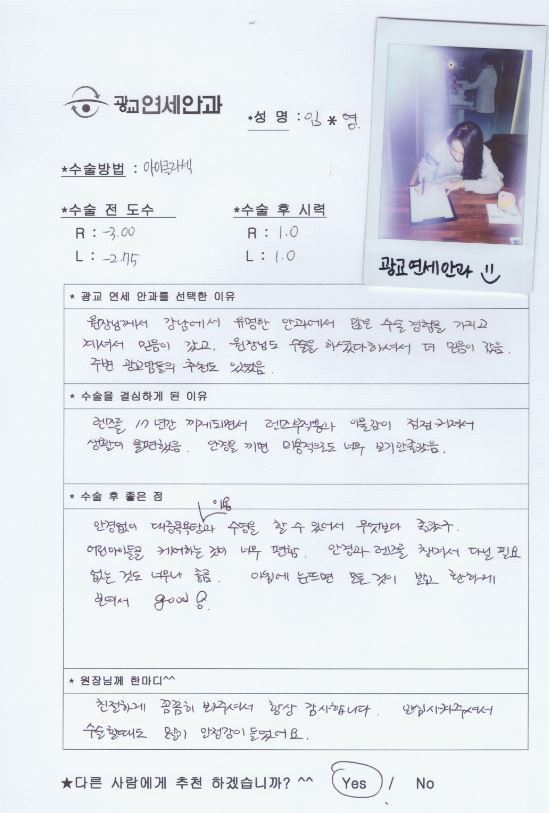 광교연세안과
*성 명 : 임*영
*수술방법 : 아이라섹
*수술 전 도수
*수술 후 시력
R : -3.00
R : 1.0
L : -2.75
L : 1.0
광교연세안과
* 광교 연세 안과를 선택한 이유
원장님께서 강남에서 유명한 안과에서 많은 수술 경험을 가지고
계셔서 믿음이 갔고. 원장님도 수술을 하셨다하셔서 더 믿음이 갔음.
주변 광교맘들의 추천도 있었음.
* 수술을 결심하게 된 이유
렌즈를 17년간 끼게되면서 렌즈부작용과 이물감이 점점 커져서
생활이 불편했음. 안경을 끼면 미용적으로도 너무 보기안좋았음.
* 수술 후 좋은 점
이용
안경없이 대중목욕탕과 수영을 할 수 있어서 무엇보다 좋았구.
어린아이들을 케어하는 것이 너무 편함. 안경과 렌즈를 챙겨서 다닐 필요
없는 것도 너무나 좋음. 아침에 눈뜨면 모든 것이 밝고 환하게
보여서 good
* 원장님께 한마디^^
친절하게 꼼꼼히 봐주셔서 항상 감사합니다. 안심시켜주셔서
수술할때도 많이 안정감이 들었어요.
★다른 사람에게 추천 하겠습니까? ^^ Yes / No